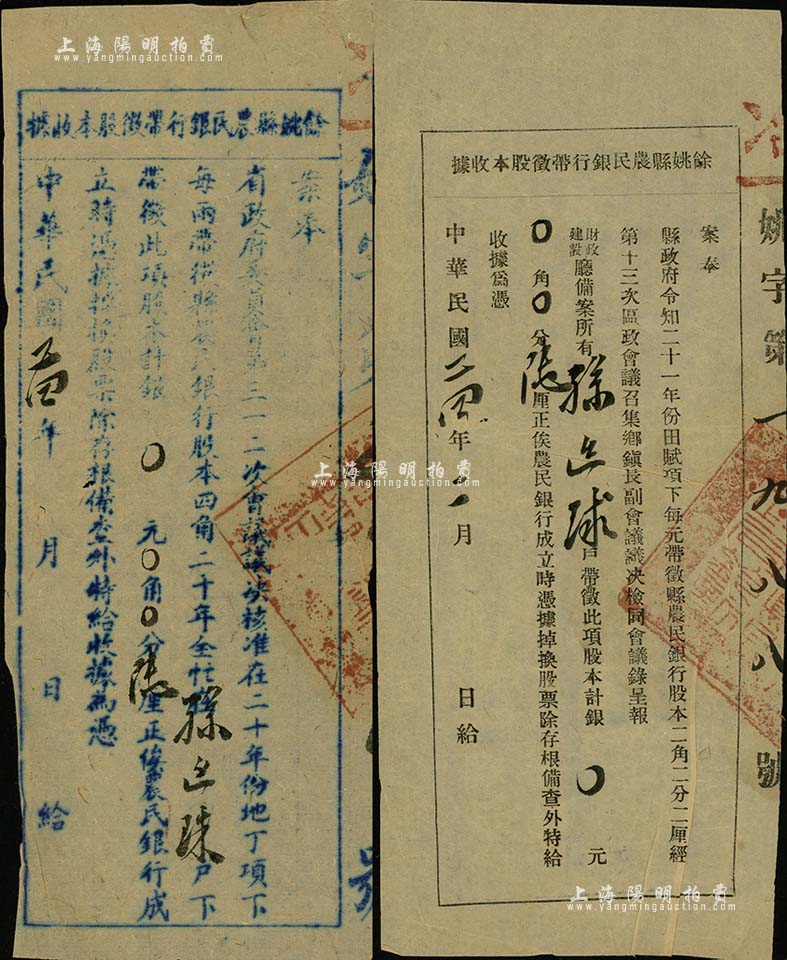 上海陽明拍賣
www.yangmingauction.com
上海陽明拍賣
www.yangmingauction.com
餘姚縣農民銀行帶徵股本收據
姚字第一九八八號
案奉
縣政府令知二十一年份田賦項下每元帶徵縣農民銀行股本二角二分二厘經
第十三次區政會議召集鄉鎮長副會議議決檢同會議錄呈報
財政建設廳備案所有 戶帶徵此項股本計銀〇元
〇角〇分 厘正俟農民銀行成立時憑據掉換股票除存根備查外特給
收據爲憑
中華民國 年 月 日給
餘姚縣農民銀行帶徵股本收據
案奉
省政府委員會第三一二次會議議決核准在二十年份地丁項下
每兩帶徵縣農民銀行股本四角二十年全忙 戶下
帶徵此項股本計銀〇元〇角〇分 厘正俟農民銀行成
立時憑據掉換股票除存根備查外特給收據為憑
中華民國 年 月 日 給
號
上海陽明拍賣
www.yangmingauction.com
上海陽明拍賣
www.yangmingauction.com